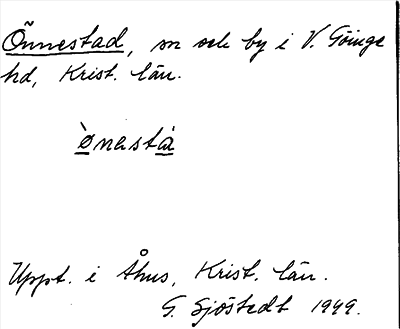 Önnestad, sn och by i V. Göinge
hd, Krist. län.
ø̀nəstá
Uppt. i Åhus, Krist. län.
G. Sjöstedt 1949.